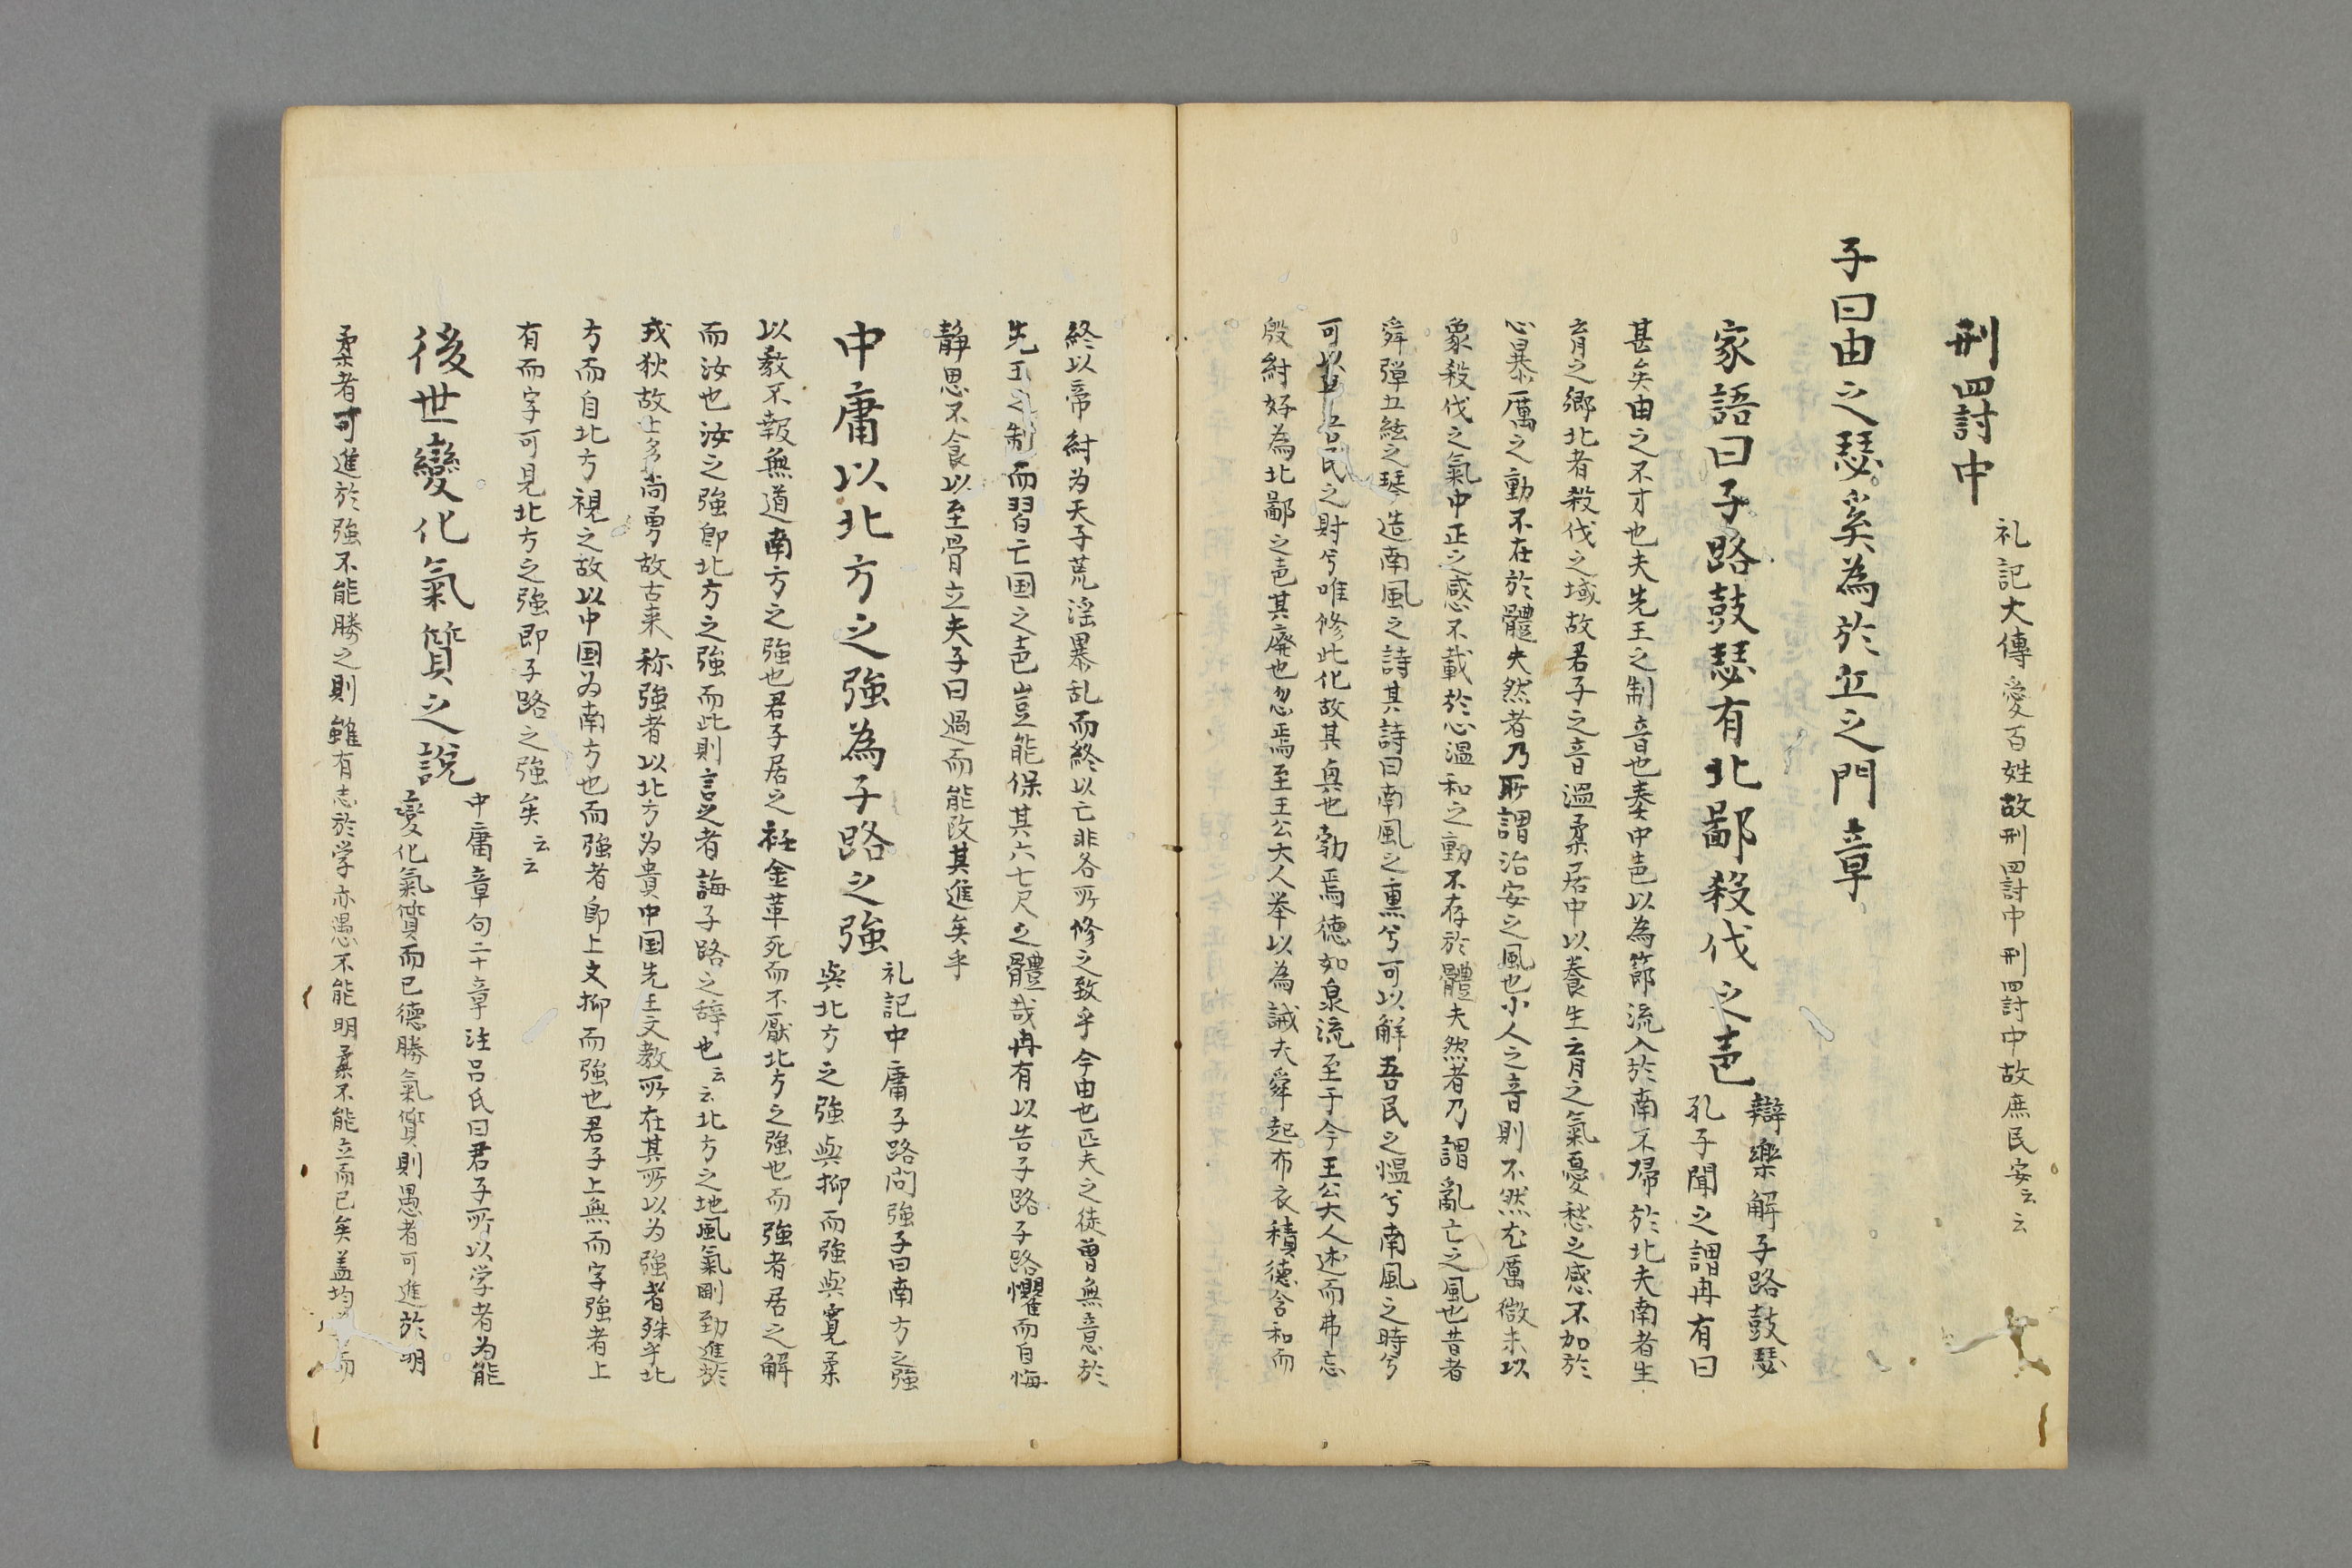 刑罸中
礼記大傳愛百姓故刑罸中刑罸中故庶民安云云
子曰由之瑟奚為於丘之門章
家語曰子路鼓瑟有北鄙殺伐之声
辯樂解子路鼓瑟
孔子聞之謂冉有曰
甚矣由之不才也夫先王之制音也奏中声以為節流入於南不帰於北夫南者生
育之郷北者殺伐之域故君子之音温柔居中以養生育之氣憂愁之感不加於
心暴厲之動不在於體夫然者乃所謂治安之風也小人之音則不然亢厲微末以
象殺伐之氣中正之感不載於心温和之動不存於體夫然者乃謂亂亡之風也昔者
舜弾五絃之琴造南風之詩其詩曰南風之熏兮可以解吾民之愠兮南風之時兮
可以阜吾民之財兮唯修此化故其興也勃焉德如泉流至于今王公大人述而弗忘
殷紂好為北鄙之声其廃也忽焉至王公大人挙以為誡夫舜起布衣積徳含和而
終以帝紂为天子荒淫暴乱而終以亡非各所修之致乎今由也匹夫之徒曽無意於
先王之制而習亡国之声豈能保其六七尺之體哉冉有以告子路子路懼而自悔
静思不食以至骨立夫子曰過而能改其進矣乎
中庸以北方之強為子路之強
礼記中庸子路問強子曰南方之強
與北方之強與抑而強與寛柔
以教不報無道南方之強也君子居之衽金革死而不厭北方之強也而強者居之解
而汝也汝之強即北方之強而此則言之者誨子路之辞也云云北方之地風氣剛勁進於
戎狄故士多尚勇故古来称強者以北方为貴中国先王文教所在其所以为強者殊乎北
方而自北方視之故以中国为南方也而強者即上文抑而強也君子上無而字強者上
有而字可見北方之強即子路之強矣云云
後世變化氣質之説
中庸章句二十章注呂氏曰君子所以学者为能
變化氣質而已德勝氣質則愚者可進於明
柔者可進於強不能勝之則雖有志於学亦愚不能明柔不能立而已矣盖均善而